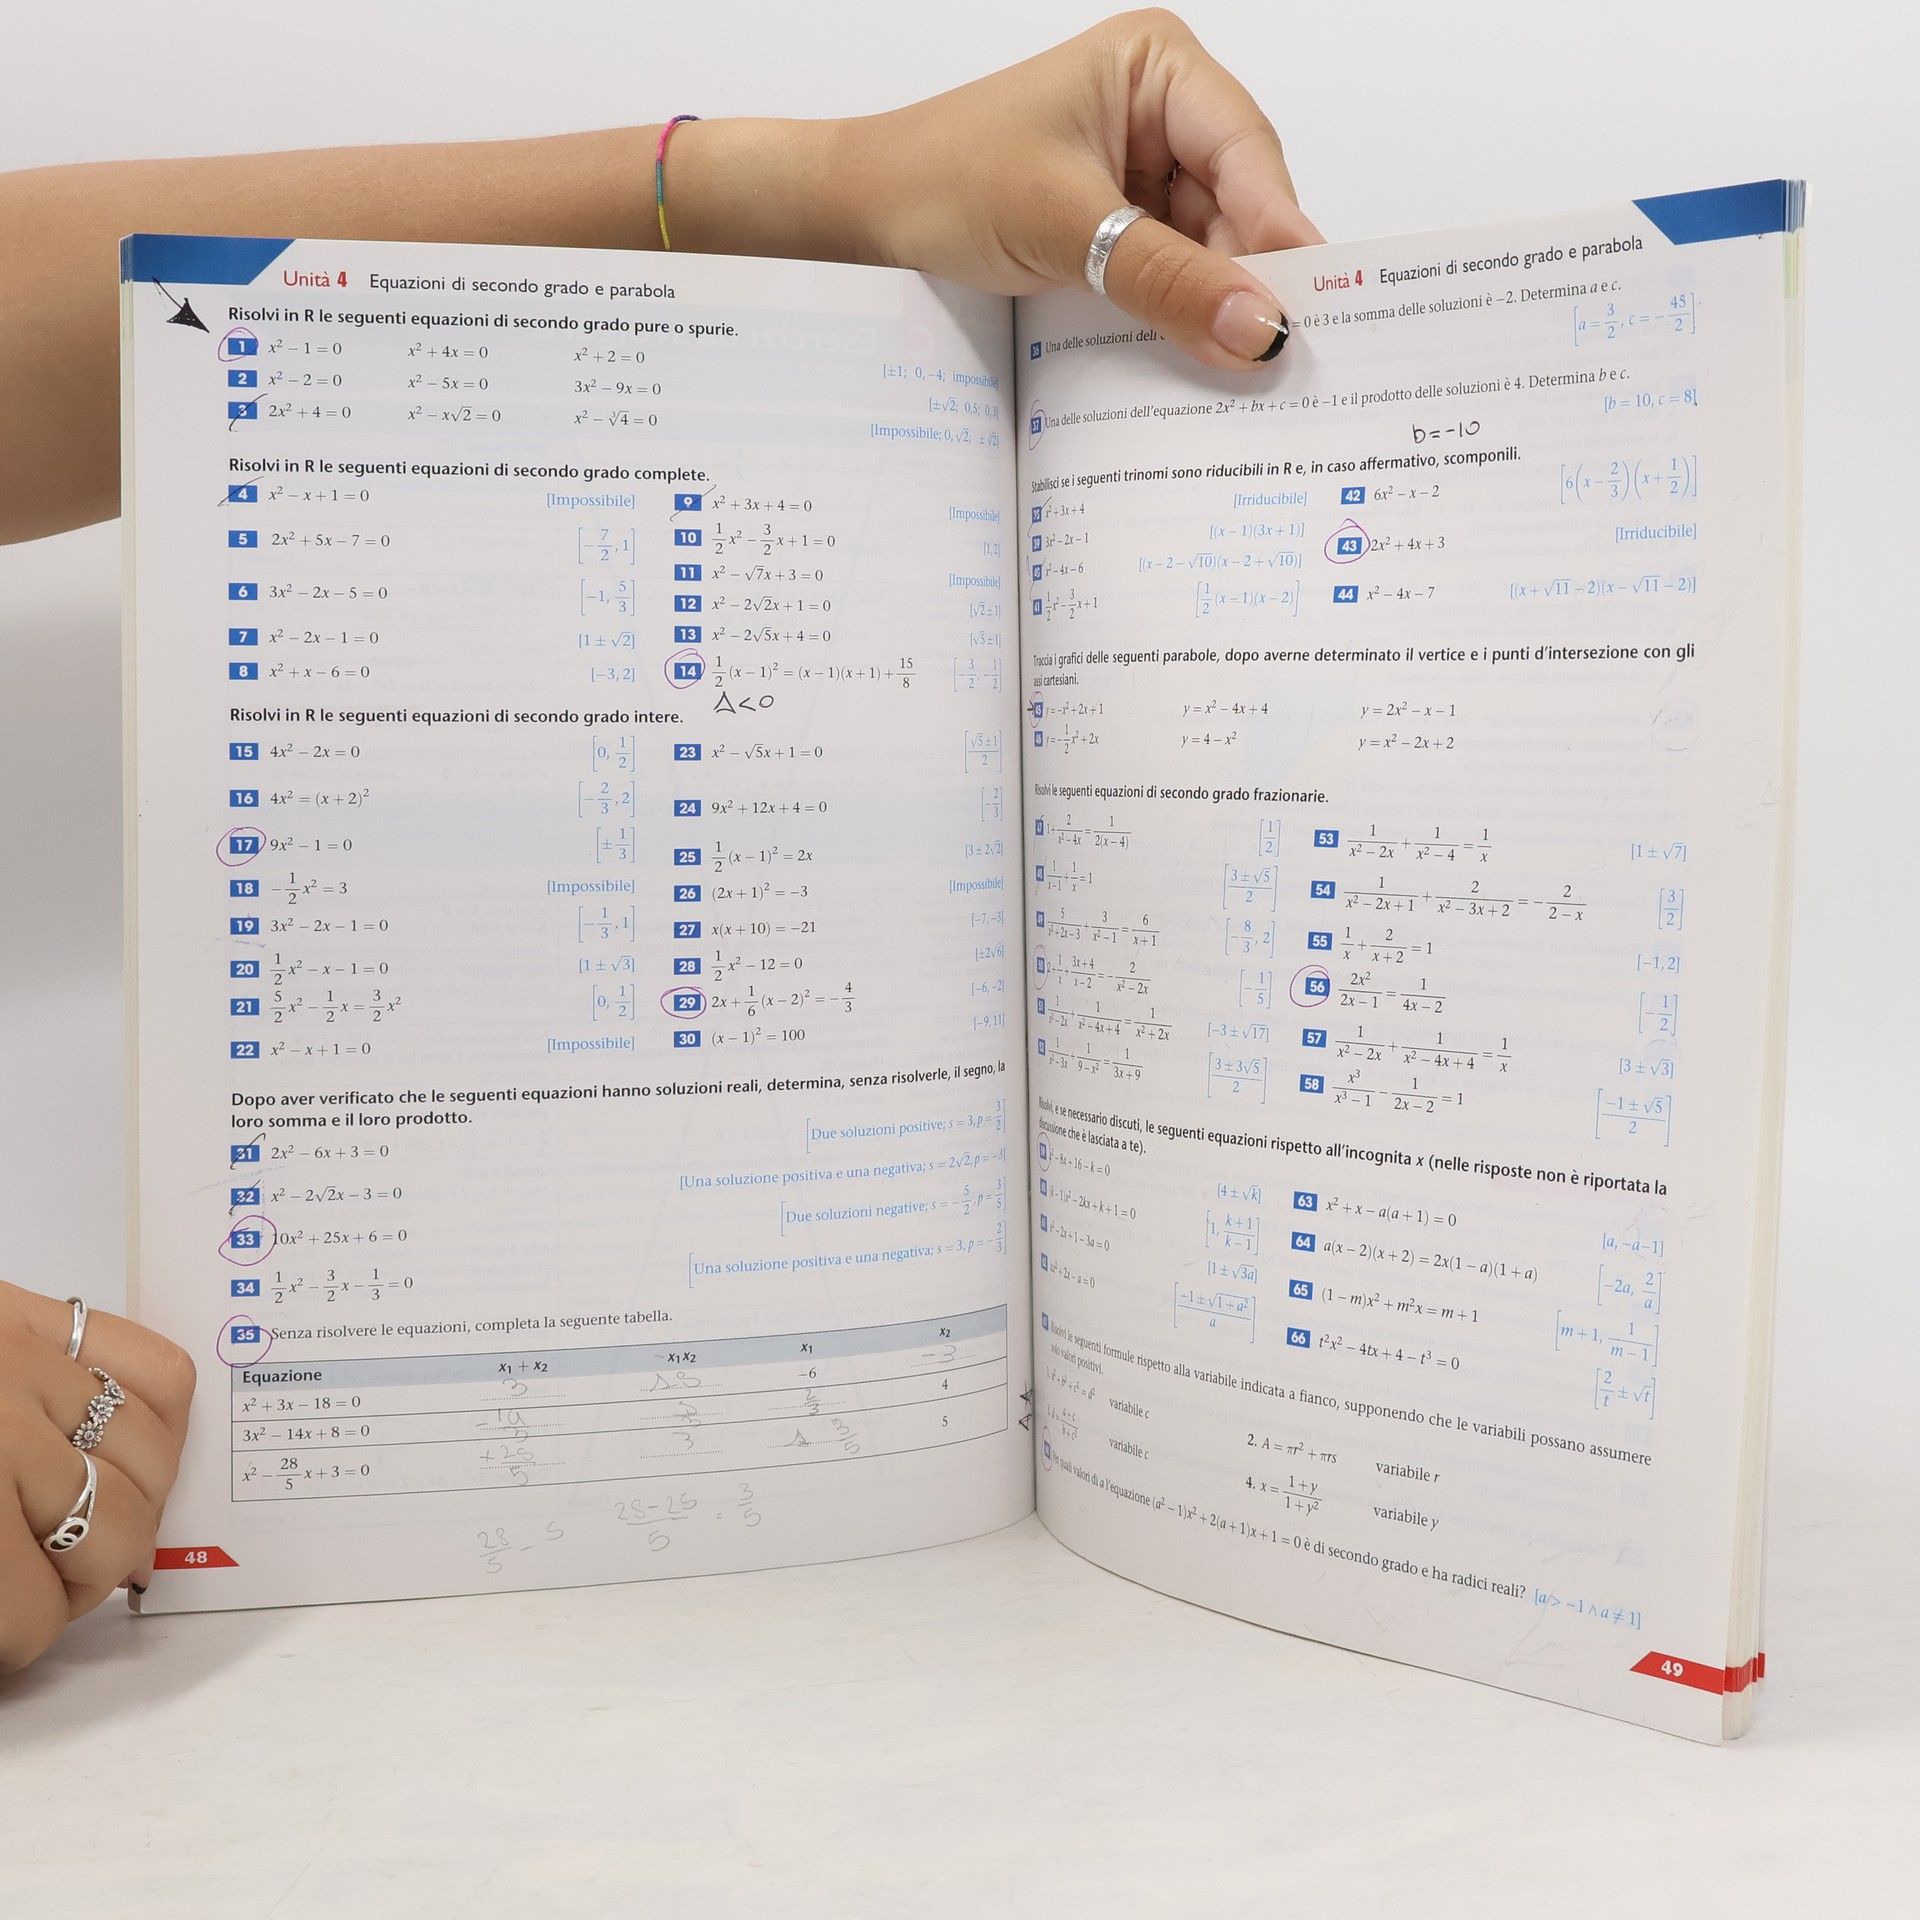 Unità 4 Equazioni di secondo grado e parabola
Risolvi in R le seguenti equazioni di secondo grado pure o spurie.
1 x² − 1 = 0 x² + 4x = 0 x² + 2 = 0 [±1; 0, −4; impossibile]
2 x² − 2 = 0 x² − 5x = 0 3x² − 9x = 0 [±√2; 0,5; 0,3]
3 2x² + 4 = 0 x² − x√2 = 0 x² − ∛4 = 0 [Impossibile; 0, √2; ± ∛2]
Risolvi in R le seguenti equazioni di secondo grado complete.
4 x² − x + 1 = 0 [Impossibile]
5 2x² + 5x − 7 = 0 [−7/2, 1]
6 3x² − 2x − 5 = 0 [−1, 5/3]
7 x² − 2x − 1 = 0 [1 ± √2]
8 x² + x − 6 = 0 [−3, 2]
9 x² + 3x + 4 = 0 [Impossibile]
10 1/2 x² − 3/2 x + 1 = 0 [1, 2]
11 x² − √7x + 3 = 0 [Impossibile]
12 x² − 2√2x + 1 = 0 [√2 ± 1]
13 x² − 2√5x + 4 = 0 [√5 ± 1]
14 1/2 (x − 1)² = (x − 1)(x + 1) + 15/8 [−3/2, −1/2]
Δ<0
Risolvi in R le seguenti equazioni di secondo grado intere.
15 4x² − 2x = 0 [0, 1/2]
16 4x² = (x + 2)² [−2/3, 2]
17 9x² − 1 = 0 [± 1/3]
18 −1/2 x² = 3 [Impossibile]
19 3x² − 2x − 1 = 0 [−1/3, 1]
20 1/2 x² − x − 1 = 0 [1 ± √3]
21 5/2 x² − 1/2 x = 3/2 x² [0, 1/2]
22 x² − x + 1 = 0 [Impossibile]
23 x² − √5x + 1 = 0 [(√5 ± 1)/2]
24 9x² + 12x + 4 = 0 [−2/3]
25 1/2 (x − 1)² = 2x [3 ± 2√2]
26 (2x + 1)² = −3 [Impossibile]
27 x(x + 10) = −21 [−7, −3]
28 1/2 x² − 12 = 0 [±2√6]
29 2x + 1/6 (x − 2)² = −4/3 [−6, −2]
30 (x − 1)² = 100 [−9, 11]
Dopo aver verificato che le seguenti equazioni hanno soluzioni reali, determina, senza risolverle, il segno, la
loro somma e il loro prodotto.
31 2x² − 6x + 3 = 0 [Due soluzioni positive; s = 3, p = 3/2]
32 x² − 2√2x − 3 = 0 [Una soluzione positiva e una negativa; s = 2√2, p = −3]
33 10x² + 25x + 6 = 0 [Due soluzioni negative; s = −5/2, p = 3/5]
34 1/2 x² − 3/2 x − 1/3 = 0 [Una soluzione positiva e una negativa; s = 3, p = −2/3]
35 Senza risolvere le equazioni, completa la seguente tabella.
Equazione x₁ + x₂ x₁x₂ x₁ x₂
x² + 3x − 18 = 0 3 −6 −3
3x² − 14x + 8 = 0 2/3 4
x² − 28/5 x + 3 = 0 +28/5 3 3/5 5
28/5 − 5 (28−25)/5 = 3/5
48
Unità 4 Equazioni di secondo grado e parabola
36 Una delle soluzioni dell' = 0 è 3 e la somma delle soluzioni è −2. Determina a e c.
[a = 3/2, c = −45/2]
37 Una delle soluzioni dell'equazione 2x² + bx + c = 0 è −1 e il prodotto delle soluzioni è 4. Determina b e c.
[b = 10, c = 8]
b=−10
Stabilisci se i seguenti trinomi sono riducibili in R e, in caso affermativo, scomponili.
38 x² + 3x + 4 [Irriducibile]
39 3x² − 2x − 1 [(x − 1)(3x + 1)]
40 x² − 4x − 6 [(x − 2 − √10)(x − 2 + √10)]
41 1/2 x² − 3/2 x + 1 [1/2 (x − 1)(x − 2)]
42 6x² − x − 2 [6(x − 2/3)(x + 1/2)]
43 2x² + 4x + 3 [Irriducibile]
44 x² − 4x − 7 [(x + √11 − 2)(x − √11 − 2)]
Traccia i grafici delle seguenti parabole, dopo averne determinato il vertice e i punti d'intersezione con gli
assi cartesiani.
45 y = −x² + 2x + 1 y = x² − 4x + 4 y = 2x² − x − 1
46 y = −1/2 x² + 2x y = 4 − x² y = x² − 2x + 2
Risolvi le seguenti equazioni di secondo grado frazionarie.
47 1 + 2/(x² − 4x) = 1/(2(x − 4)) [1/2]
48 1/(x − 1) + 1/x = 1 [(3 ± √5)/2]
49 5/(x² + 2x − 3) + 3/(x² − 1) = 6/(x + 1) [−8/3, 2]
50 2 + 1/x + (3x + 4)/(x − 2) = −2/(x² − 2x) [−1/5]
51 1/(x² − 2x) + 1/(x² − 4x + 4) = 1/(x² + 2x) [−3 ± √17]
52 1/(x² − 3x) + 1/(9 − x²) = 1/(3x + 9) [(3 ± 3√5)/2]
53 1/(x² − 2x) + 1/(x² − 4) = 1/x [1 ± √7]
54 1/(x² − 2x + 1) + 2/(x² − 3x + 2) = −2/(2 − x) [3/2]
55 1/x + 2/(x + 2) = 1 [−1, 2]
56 2x²/(2x − 1) = 1/(4x − 2) [−1/2]
57 1/(x² − 2x) + 1/(x² − 4x + 4) = 1/x [3 ± √3]
58 x³/(x³ − 1) − 1/(2x − 2) = 1 [(−1 ± √5)/2]
Risolvi, e se necessario discuti, le seguenti equazioni rispetto all'incognita x (nelle risposte non è riportata la
discussione che è lasciata a te).
x² − 8x + 16 − k = 0 [4 ± √k]
(k − 1)x² − 2kx + k + 1 = 0 [1, (k + 1)/(k − 1)]
x² − 2x + 1 − 3a = 0 [1 ± √3a]
ax² + 2x − a = 0 [(−1 ± √1 + a²)/a]
63 x² + x − a(a + 1) = 0 [a, −a−1]
64 a(x − 2)(x + 2) = 2x(1 − a)(1 + a) [−2a, 2/a]
65 (1 − m)x² + m²x = m + 1 [m + 1, 1/(m − 1)]
66 t²x² − 4tx + 4 − t³ = 0 [2/t ± √t]
Risolvi le seguenti formule rispetto alla variabile indicata a fianco, supponendo che le variabili possano assumere
solo valori positivi.
variabile c 2. A = πr² + πrs variabile r
variabile c 4. x = (1 + y)/(1 + y²) variabile y
Per quali valori di a l'equazione (a² − 1)x² + 2(a + 1)x + 1 = 0 è di secondo grado e ha radici reali? [a > −1 ∧ a ≠ 1]
49